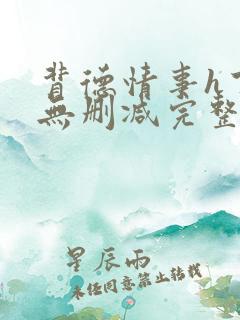 背德情事h
無删减完整
星辰雨
未经同意禁止转载